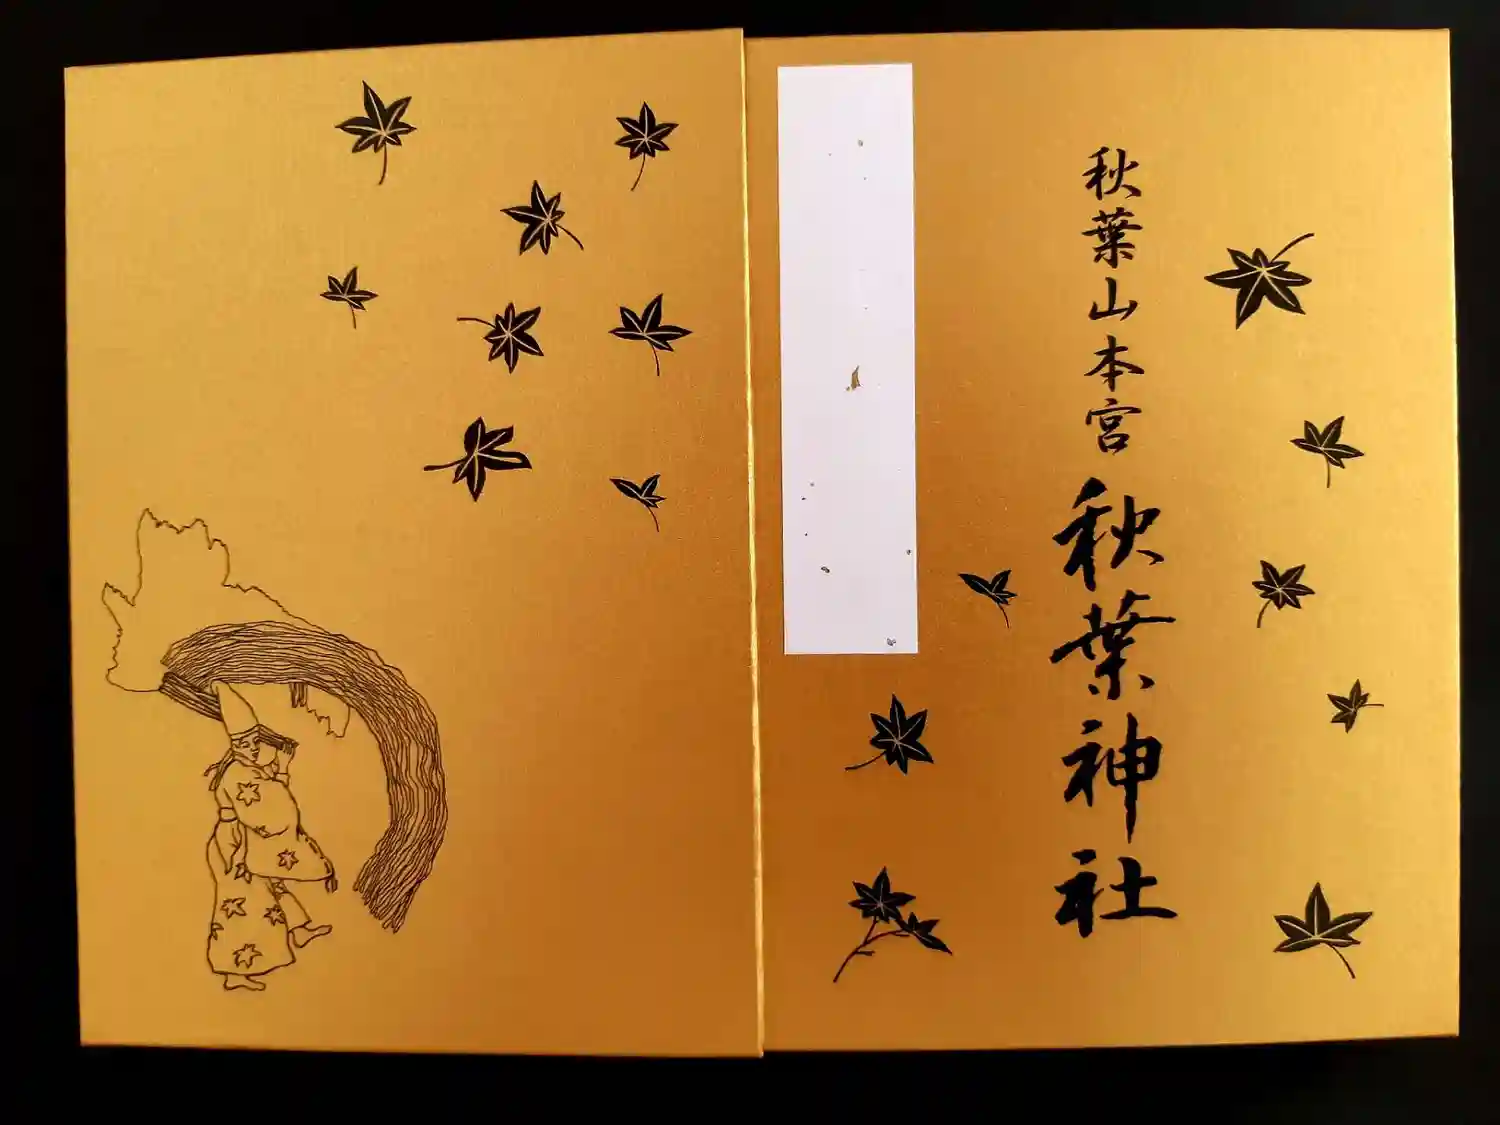 秋葉山本宮秋葉神社